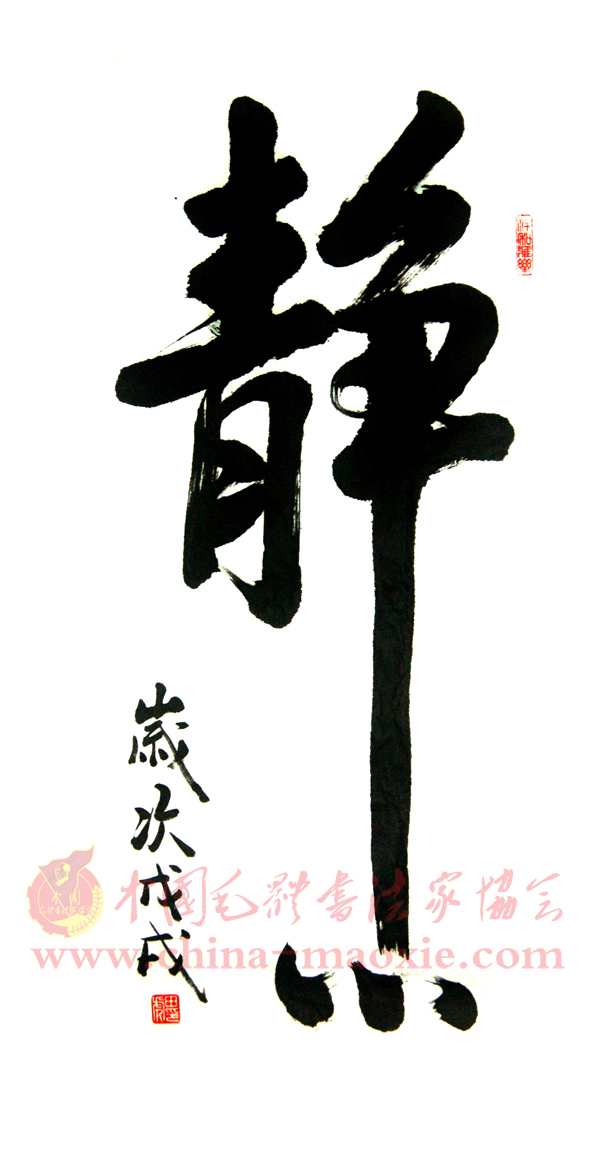 静
歲次戊戌
中國毛體書法家協会
www.china-maoxie.com